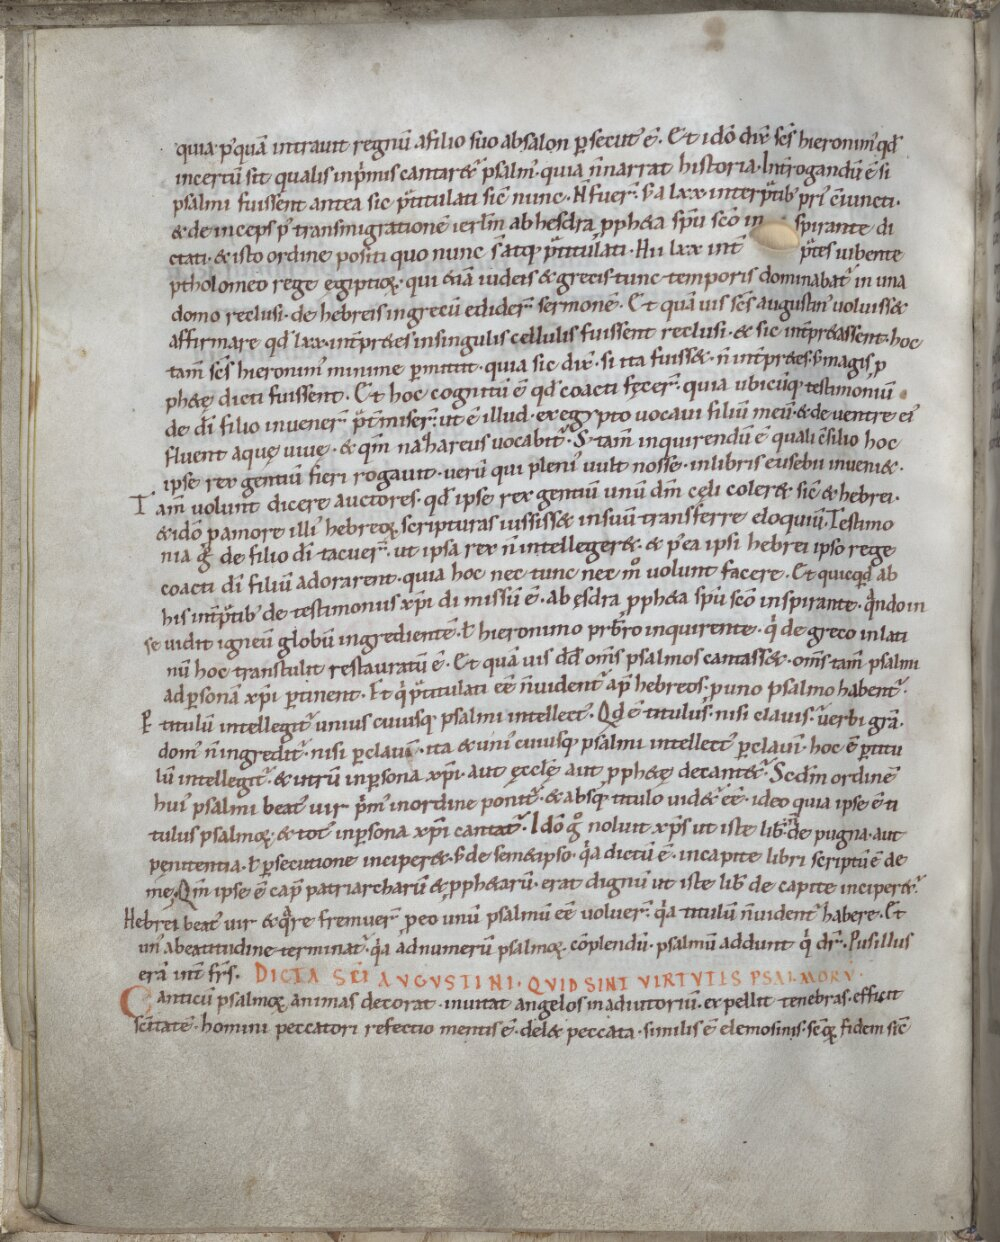 quia p'quā intravit regnū afilio suo absalon psecut' ē. Et idō dix̄ scs̄ hieronim' qd̄
incertū sit qualis inp̄mis cantaret̄ psalm̄'. quia n̄narrat historia. Int̄rogandū ē si
psalmi fuissent antea sic p̄titulati sic̄ nunc. N̄ fuer̄. s; a lxx interp̄tib; pri' c̄iuncti.
& de inceps p' transmigrationē ierlm̄ ab hesdra ppheta spū scō in spirante di
ctati. & isto ordine positi quo nunc s̄t atq; p̄titulati. Hii lxx int̄ p̄tes iubente
ptholomeo rege egiptioꝝ. qui etiā iudeis & grecis tunc temporis dominabat̄ in una
domo reclusi. de hebreis ingrecū edider̄ sermonē. Et quā vis scs̄ augustin' voluiss&
affirmare qd̄ lxx. int̄pr&es insingulis cellulis fuissent reclusi. & sic int̄pr&assent. hoc
tam̄ scs̄ hieronim' minime pmittit. quia sic dix̄. si ita fuiss&. n̄ int̄pr&es. s; magis p
ph&ę dicti fuissent. Et hoc cognitū ē qd̄ coacti fęcer̄. quia ubicūq; testimoniū
de dī filio invener̄ p̄t̄miser̄. ut ē illud. ex egypto vocavi filiū meū. & de ventre ei'
fluent aquę vivę. & qm̄ nazhareus vocabit̄. S; tam̄ inquirendū ē quali c̄silio hoc
ipse rex gentiū fieri rogavit. verū qui pleni' vult nosse. inlibris eusebii inveni&.
Tam̄ volunt dicere auctores. qd̄ ipse rex gentiū unū dm̄ cęli coler& sic̄ & hebrei.
& idō p amore illi' hebreoꝝ scripturas iussiss& insuū transferre eloquiū. Testimo
nia ḡ de filio dī tacuer̄. ut ipsa rex n̄ intelleger&. & p'ea ipsi hebrei ipso rege
coacti dī filiū adorarent. quia hoc nec tunc nec m̊ volunt facere. Et quicqd̄ ab
his int̄p̄tib; de testimoniis xp̄i di missū ē. ab ęsdra ppheta spū scō inspirante. q̄ndo in
se vidit igneū globū ingredientē. ł hieronimo prb̄ro inquirente. q' de greco inlati
nū hoc transtulit restauratū ē. Et quā vis dd̄ om̄s psalmos cantass&. om̄s tam̄ psalmi
ad psonā xp̄i ptinent. Et q' p̄titulati eē n̄vident̄ ap̄ hebreos. p uno psalmo habent̄.
P titulū intellegit̄ unius cuiusq; psalmi intellect'. Qd ē titulus. nisi clavis. verbi grā.
dom' n̄ ingredit̄. nisi p clavē. ita & uni' cuiusq; psalmi intellect' p clavē. hoc ē p titu
lū intellegit̄. & utrū inpsona xp̄i. aut ęcclę aut pph&ę decant&̄. Scdm̄ ordinē
hui' psalmi beat' vir p̄m' inordine ponit̄. & absq; titulo videt̄ eē. ideo quia ipse ē ti
tulus psalmoꝝ. & tot' inpsona xp̄i cantat̄. Idō ḡ noluit xp̄s ut iste lib̄ de pugna. aut
penitentia. ł psecutione inciper&. s; de sem&ipso. q̄a dictū ē. incapite libri scriptū ē de
me. Qm̄ ipse ē cap̄ patriarcharū & pph&arū. erat dignū ut iste lib̄ de capite inciper&.
Hebrei beat' vir & q̄re fremuer̄. p eo unū psalmū eē voluer̄. q̄a titulū n̄vident̄ habere. Et
un' abeatitudine terminat̄. q̄a adnumerū psalmoꝝ cōplendū. psalmū addunt q' dr̄. Pusillus
erā int̄ frs̄. DICTA SC̄I AVGVSTINI. QVID SINT VIRTVTIS PSALMORV̄.
Canticū psalmoꝝ animas decorat. invitat angelos inadiutoriū. expellit tenebras. efficit
sc̄itatē. homini peccatori refectio mentis ē. del& peccata. similis ē elemosinis. sc̄oꝝ fidem sic̄